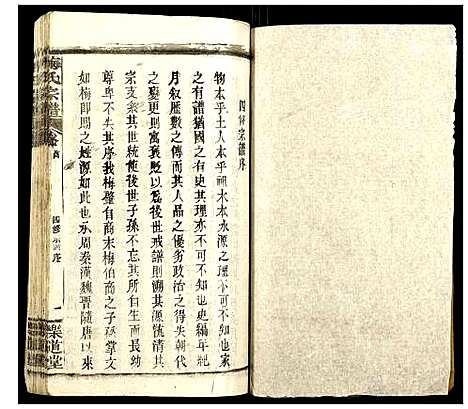 四修宗譜序
物本乎土人本乎祖木本水源之理不可忽也家
之有譜猶國之有史其理亦不可不明也史編年紀
月叙歷數之傳而其人品之優劣政治之得失朝代
之變更則寓褒貶以爲後世戒譜則清其源流清其
宗支系其世統使後世子孫不忘其所自生而長
尊卑不失其序我梅肇自商末梅伯商之子孫掌文
如梅即賜之姓源如此也承周秦漢魏晉隨唐以來
梅氏宗譜
卷首
四修宗譜序
一
樂道堂